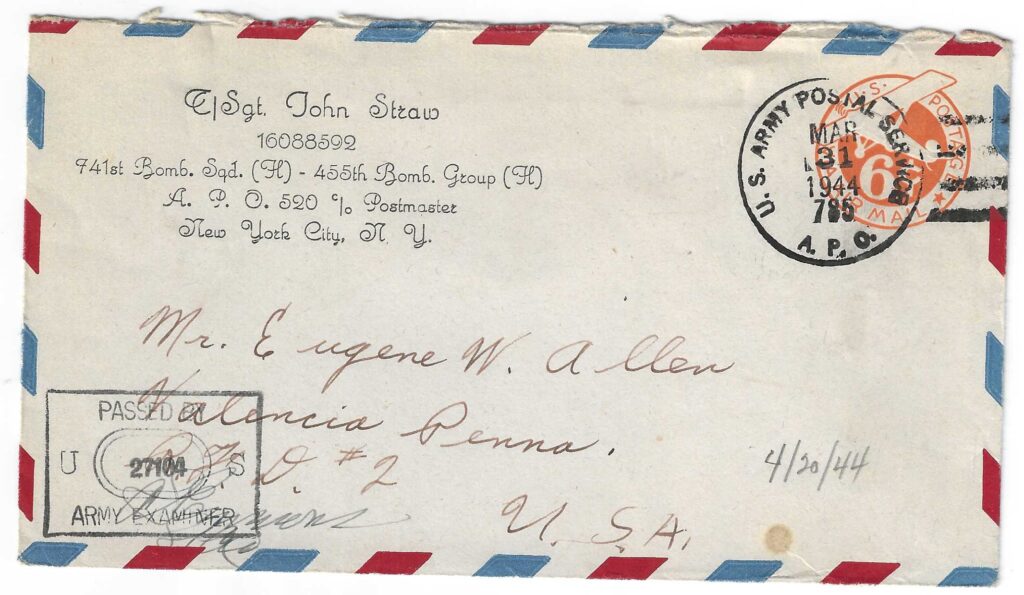 T/Sgt. John Straw
16088592
741st Bomb. Sqd. (H) - 455th Bomb. Group (H)
A. P. O. 520 c/o Postmaster
New York City, N. Y.
U. S. ARMY POSTAL SERVICE
MAR
31
1944
785
A. P. O.
U.S. POSTAGE
6c
AIR MAIL
Mr. Eugene W. Allen
Valencia Penna.
R. F. D. #2
U. S. A.
PASSED BY
U 27104 S
ARMY EXAMINER
4/20/44